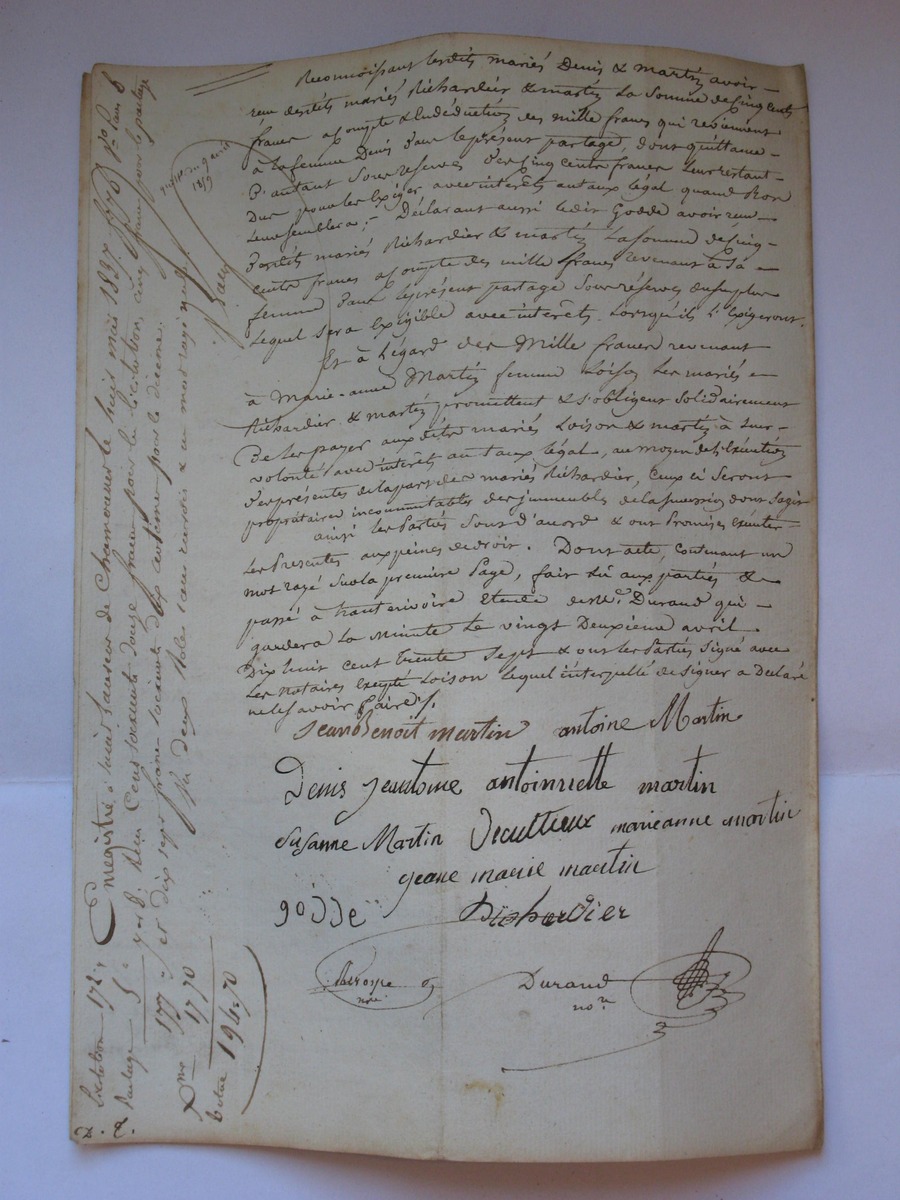 Reconnoissant lesdits mariés Denis & martin avoir
reçu desdits mariés Richardier & martin la Somme de Cinq cents
francs acompte & Endéduction des mille francs qui reviennent
à lafemme Denis dans leprésent partage, dont quittance
D'autant Sous réserves des Cinq cents francs Leur restant
Dus pour les Exiger avec intérêts au taux légal quand Bon
Leur semblera; Déclarant aussi ledit Godde avoir reçu
desdits mariés Richardier & martin La Somme de Cinq
Cents francs acompte des mille francs revenant à Sa
femme dans leprésent partage Sous réserves du surplus
Lequel Sera Exigible avec intérêts Lorsqu'ils l'Exigeront.
Et à l'égard des Mille francs revenant
à Marie-anne Martin femme Loison Les mariés
Richardier & martin promettent & s'obligent Solidairement
De les payer auxdits mariés Loison & martin à Leur
volonté avec intérêts au taux légal, au moyen de l'Exécution
des présentes de la part des mariés Richardier, Ceux ci Seront
propriétaires incommutables des immeubles de la succession dont Sagit
ainsi les Parties Sont d'accord & ont Promis Exécuter
Les Présentes aux peines de droit. Dont acte, Contenant un
mot rayé Sur la première Page, fait Lu aux parties &
passé à hauterivoire Etude de Me Durand qui
gardera La Minute Le vingt Deuxième avril
Dix huit cent trente Sept & ont les Parties Signé avec
Les Notaires Excepté Loison Lequel interpellé de Signer a Déclaré
ne le Savoir faire
Jean Benoit martin antoine Martin
Denis antoinriette martin
Susanne Martin marieanne martin
jeane marie martin
godde Richardier
Durand
nore
Enregistré à Saint Laurent de Chamousset le huit mai 1837.
reçu Cent soixante douze francs pour la licitation, cinq francs pour le partage
et dix sept francs soixante dix centimes pour le décime.
Licitation 172"
Partage 5"
177"
17 70
total 194=70